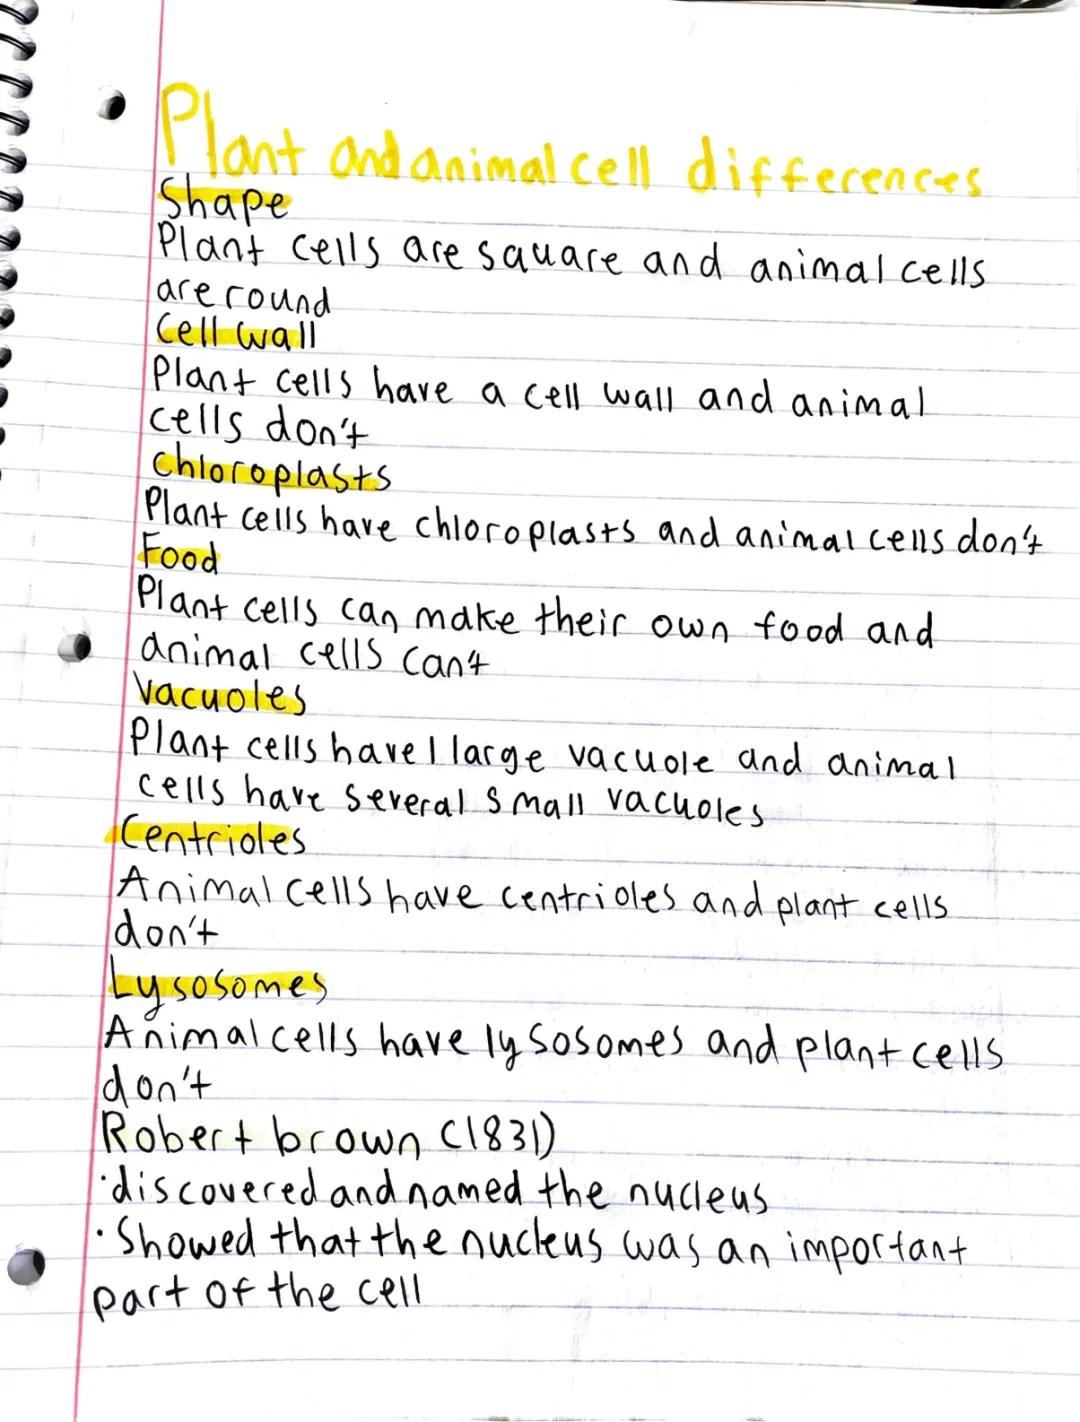 Plant and animal cell differences
Shape
Plant cells are square and animal cells
are round
Cell wall
Plant cells have a cell wall and animal
cells don't
chloroplasts
Plant cells have chloroplasts and animal cells don't
Food
Plant cells can make their own food and
animal cells can't
Vacuoles
Plant cells have 1 large vacuole and animal
cells have several small vacuoles
Centrioles
Animal cells have centrioles and plant cells
don't
Lysosomes
Animal cells have lysosomes and plant cells
don't
Robert brown (1831)
·discovered and named the nucleus
·Showed that the nucleus was an important
part of the cell